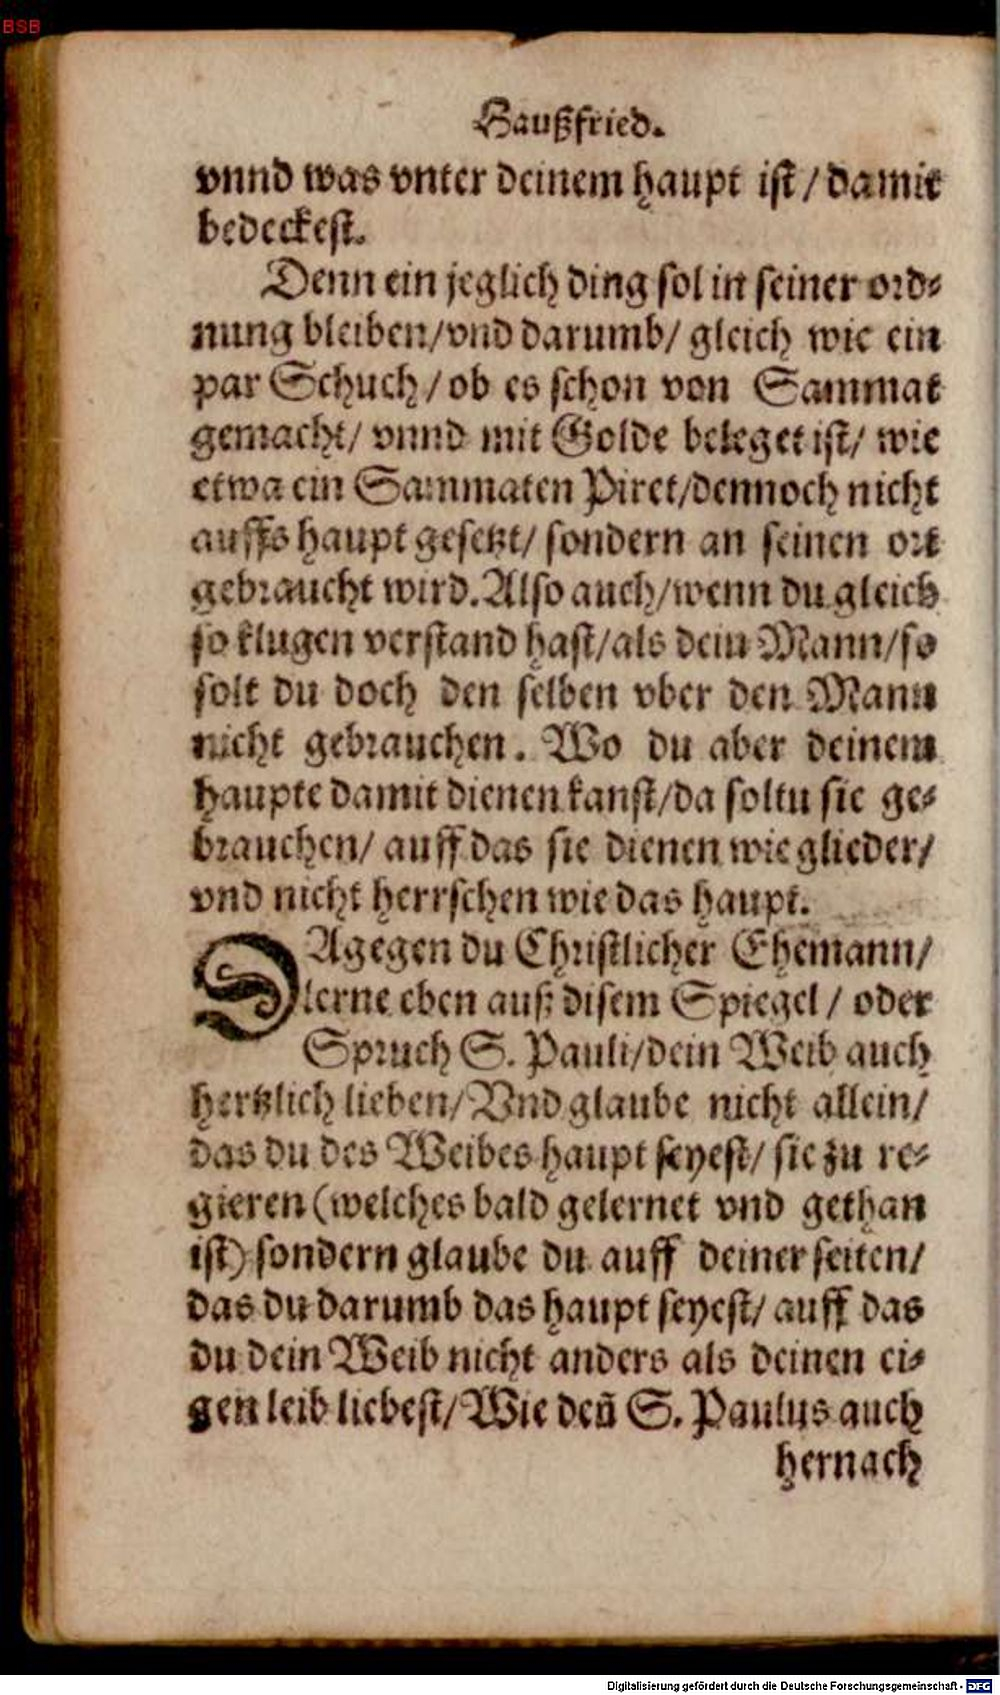 BSB
Haußfried.
vnnd was vnter deinem haupt ist / damit
bedeckest.
Denn ein jeglich ding sol in seiner ord-
nung bleiben/vnd darumb/ gleich wie ein
par Schuch / ob es schon von Sammat
gemacht/ vnnd mit Golde beleget ist/ wie
etwa ein Sammaten Piret/dennoch nicht
auffs haupt gesetzt/ sondern an seinen ort
gebraucht wird. Also auch/wenn du gleich
so klugen verstand hast/als dein Mann/so
solt du doch den selben vber den Mann
nicht gebrauchen. Wo du aber deinem
haupte damit dienen kanst/da soltu sie ge-
brauchen/ auff das sie dienen wie glieder/
vnd nicht herrschen wie das haupt.
DAgegen du Christlicher Ehemann/
lerne eben auß disem Spiegel / oder
Spruch S. Pauli/dein Weib auch
hertzlich lieben/Vnd glaube nicht allein/
das du des Weibes haupt seyest/ sie zu re-
gieren (welches bald gelernet vnd gethan
ist) sondern glaube du auff deiner seiten/
das du darumb das haupt seyest/ auff das
du dein Weib nicht anders als deinen ei-
gen leib liebest/Wie deñ S. Paulus auch
hernach
Digitalisierung gefördert durch die Deutsche Forschungsgemeinschaft - DFG